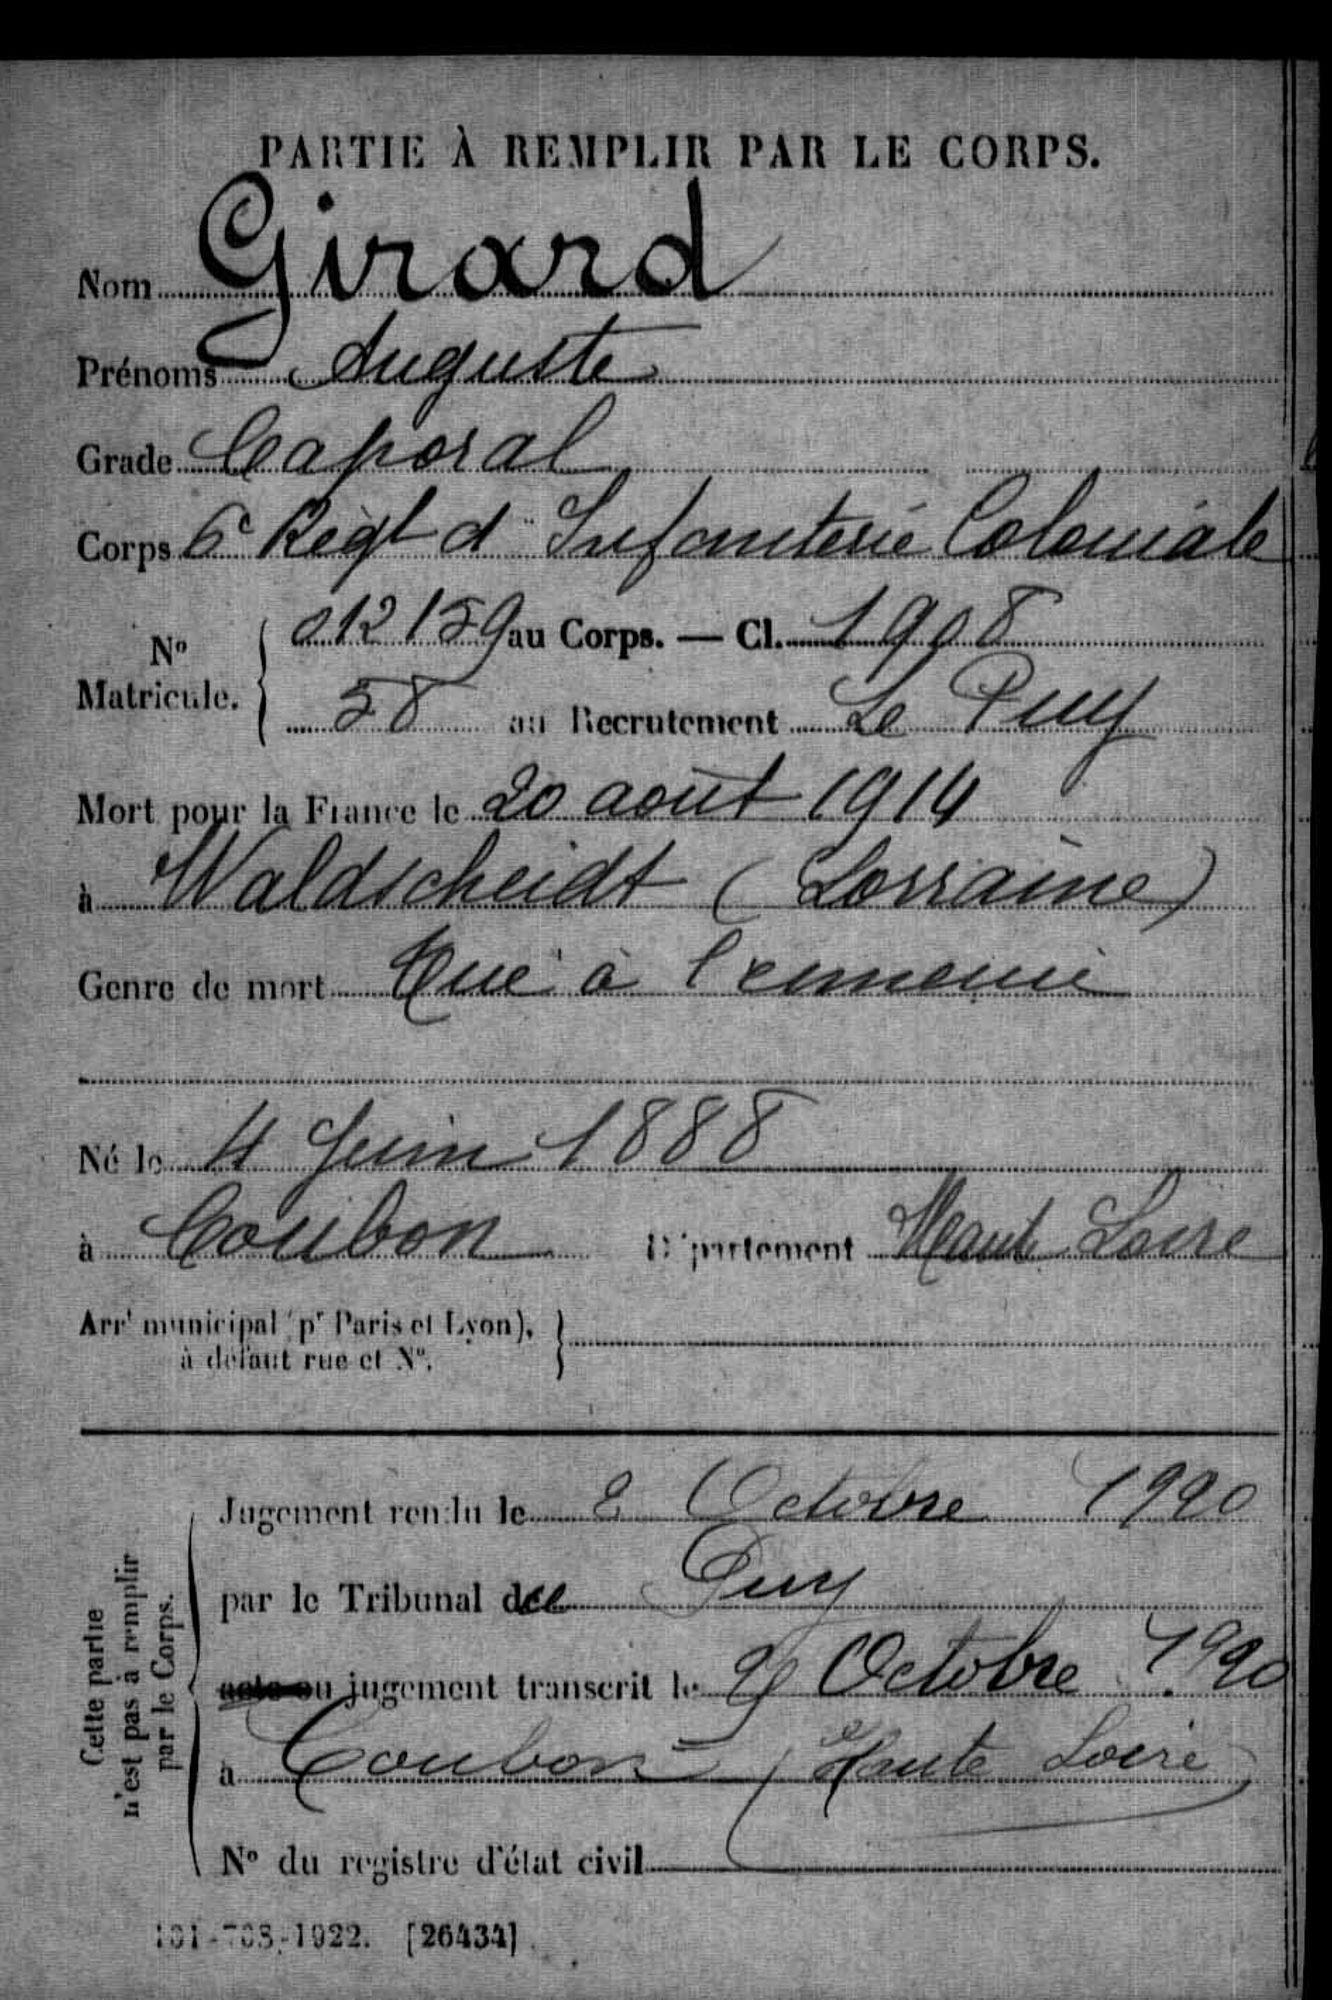 PARTIE À REMPLIR PAR LE CORPS.
Nom Girard
Prénoms Auguste
Grade Caporal
Corps 6e Régt d'Infanterie Coloniale
No Matricule. 012159 au Corps. — Cl. 1908
58 au Recrutement Le Puy
Mort pour la France le 20 août 1914
à Waldscheidt (Lorraine)
Genre de mort Tué à l'ennemi
Né le 4 Juin 1888
à Coubon Département Haute Loire
Arrt municipal (pr Paris et Lyon),
à défaut rue et No.
Cette partie
n'est pas à remplir
par le Corps.
Jugement rendu le 2 Octobre 1920
par le Tribunal du Puy
acte ou jugement transcrit le 29 Octobre 1920
à Coubon (Haute Loire)
No du registre d'état civil
101-708-1922. [26434]